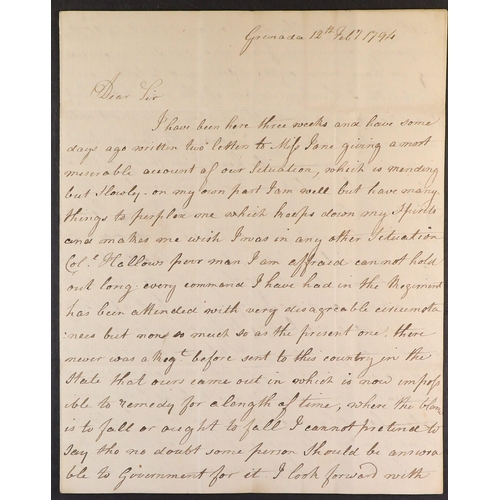 Grenada 12th Feby 1794
Dear Sir
I have been here three weeks and have some
days ago written two letters to Miss Jane giving a most
miserable account of our Situation, which is mending
but Slowly - on my own part I am well but have many
things to perplex me which keeps down my Spirits
and makes me wish I was in any other Situation
Col.l Hallows poor man I am affraid cannot hold
out long. every command I have had in the Regiment
has been attended with very disagreable circumsta
:nces but none so much so as the present one. there
never was a Regt before sent to this country in the
State that ours came out in which is now imposs
ible to remedy for a length of time, where the blame
is to fall or ought to fall I cannot pretend to
say tho no doubt some person should be answera
ble to Government for it. I look forward with